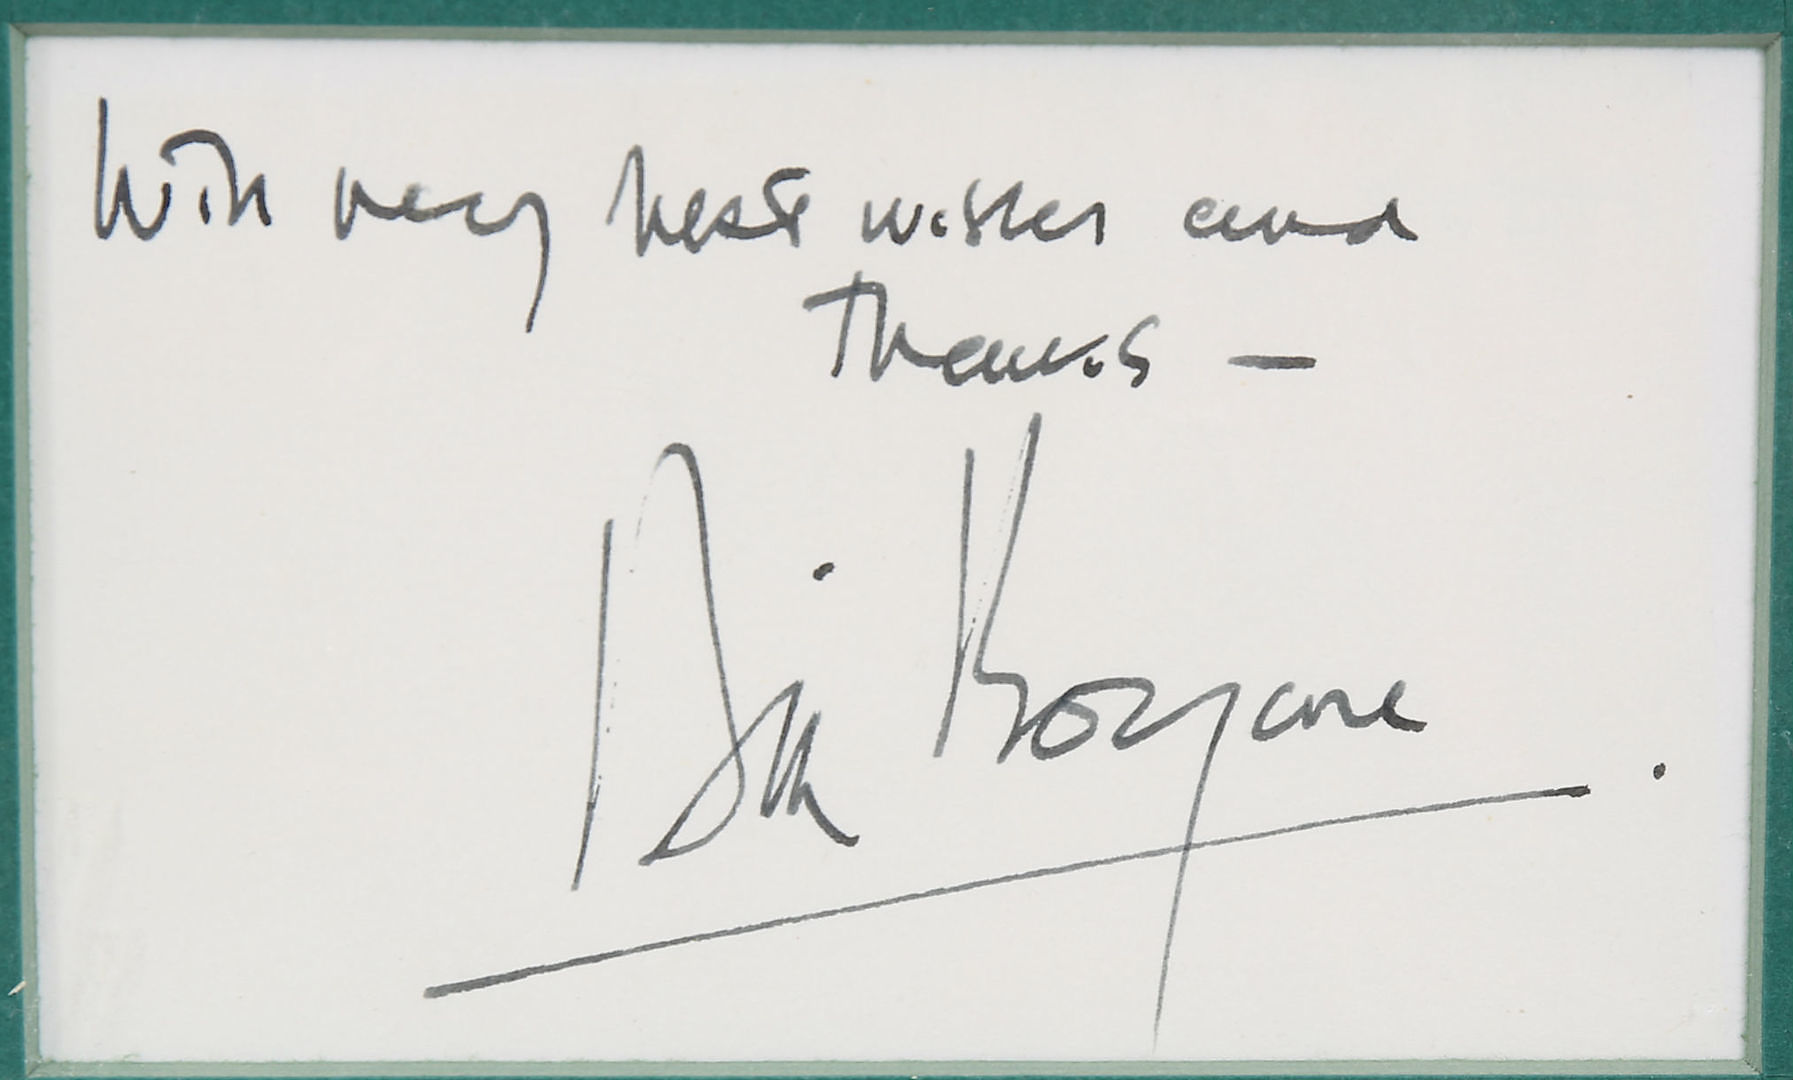 With very best wishes and
Thanks —
Dirk Bogarde.